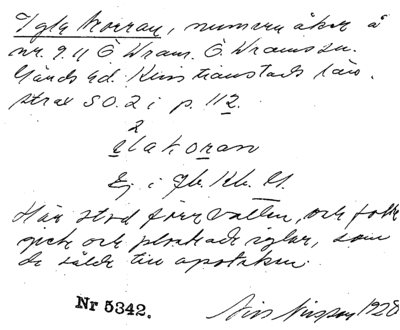 Igla korran, numera åker å
nr. 9.11 Ö. Vram. Ö. Vrams sn.
Gärds hd. Kristianstads län.
strax S.O. 2 i p. 112.
2
ɩlakoran
Ej i Jb. Kb. El.
Här stod förr vatten, och folk
gick och plockade iglar, som
de sålde till apoteken.
Nr 5342.
1928